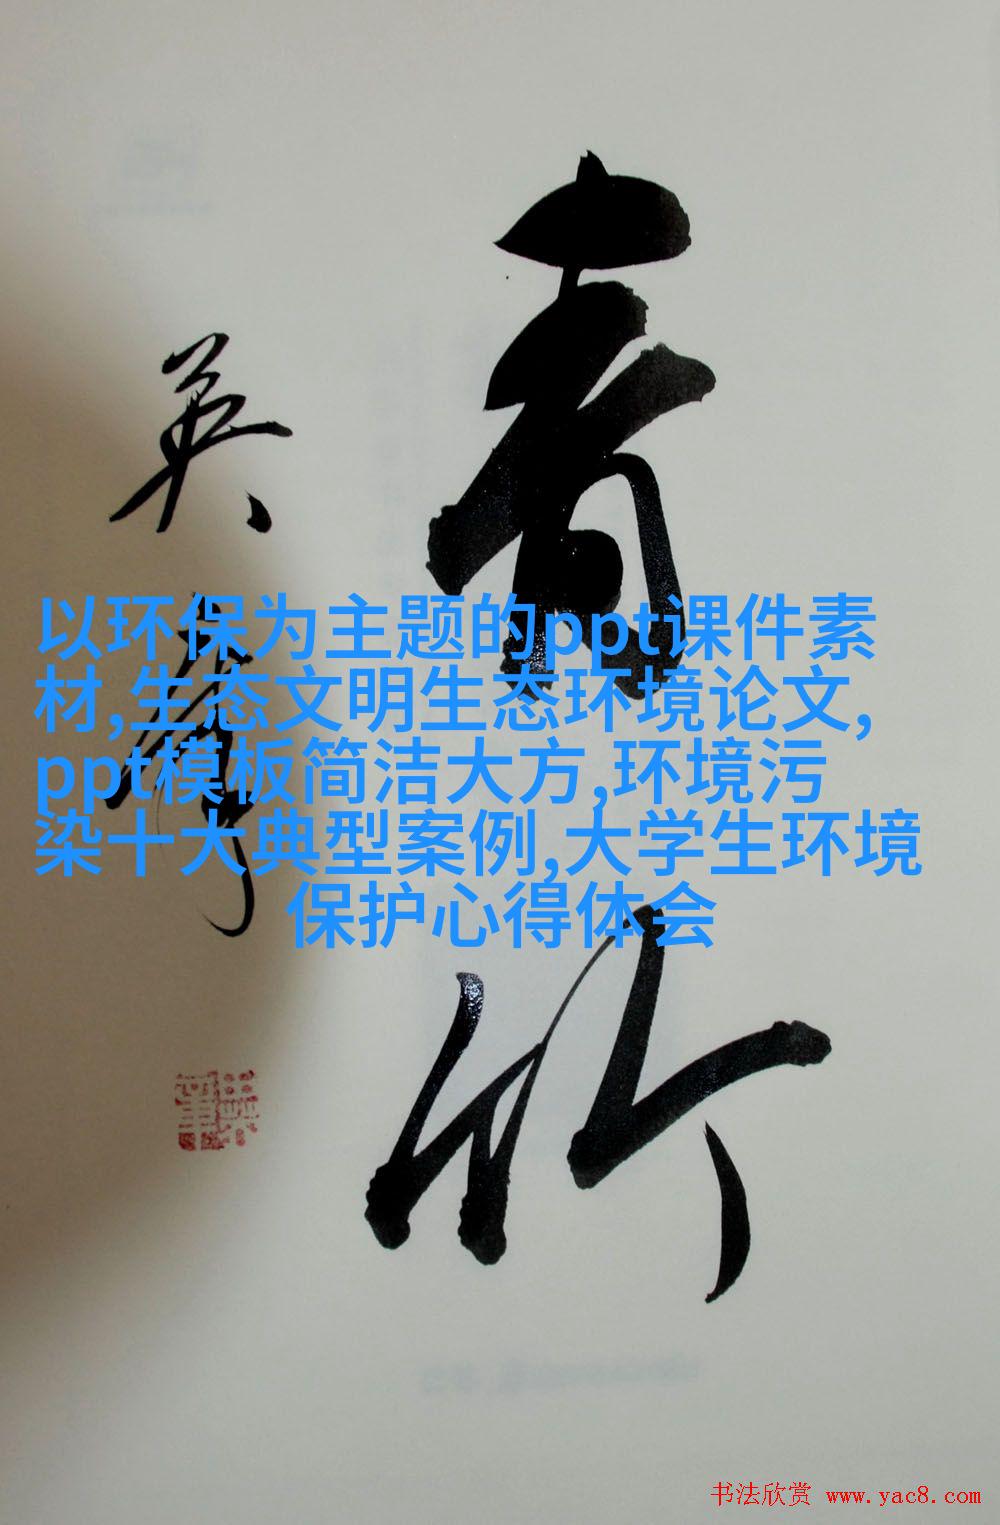 青竹
英彦
以环保为主题的ppt课件素
材,生态文明生态环境论文,
ppt模板简洁大方,环境污
染十大典型案例,大学生环境
保护心得体会
书法欣赏 www.yac8.com